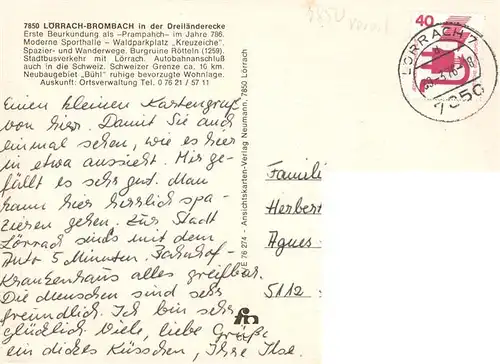 7850 LÖRRACH-BROMBACH in der Dreiländerecke
Erste Beurkundung als «Prampahch» im Jahre 786.
Moderne Sporthalle – Waldparkplatz „Kreuzeiche".
Spazier- und Wanderwege. Burgruine Rötteln (1259).
Stadtbusverkehr mit Lörrach. Autobahnanschluß
auch in die Schweiz. Schweizer Grenze ca. 10 km.
Neubaugebiet „Bühl" ruhige bevorzugte Wohnlage.
Auskunft: Ortsverwaltung Tel. 0 76 21 / 57 11
Einen kleinen Kartengruß
von hier. Damit Sie auch
einmal sehen, wie es hier
in etwa aussieht. Mir ge-
fällt es sehr gut. Man
kann hier herrlich spa-
zieren gehen. Zur Stadt
Lörrach sinds mit dem
Auto 5 Minuten. Bahnhof-
Krankenhaus alles greifbar.
Die Menschen sind sehr
freundlich. Ich bin sehr
glücklich. Viele, liebe Grüße
ein dickes Küsschen, Ihre Ilse.
E 76 274 - Ansichtskarten-Verlag Neumann, 7850 Lörrach
7850
40
LÖRRACH 7
7850
Famili
Herbert
Agnes
5112